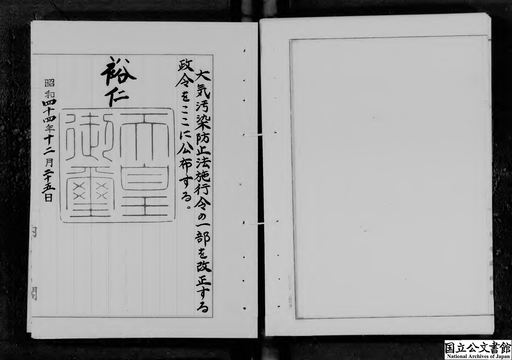 大気汚染防止法施行令の一部を改正する
政令をここに公布する。
裕仁
天皇
御璽
昭和四十四年十二月二十五日
国立公文書館
National Archives of Japan